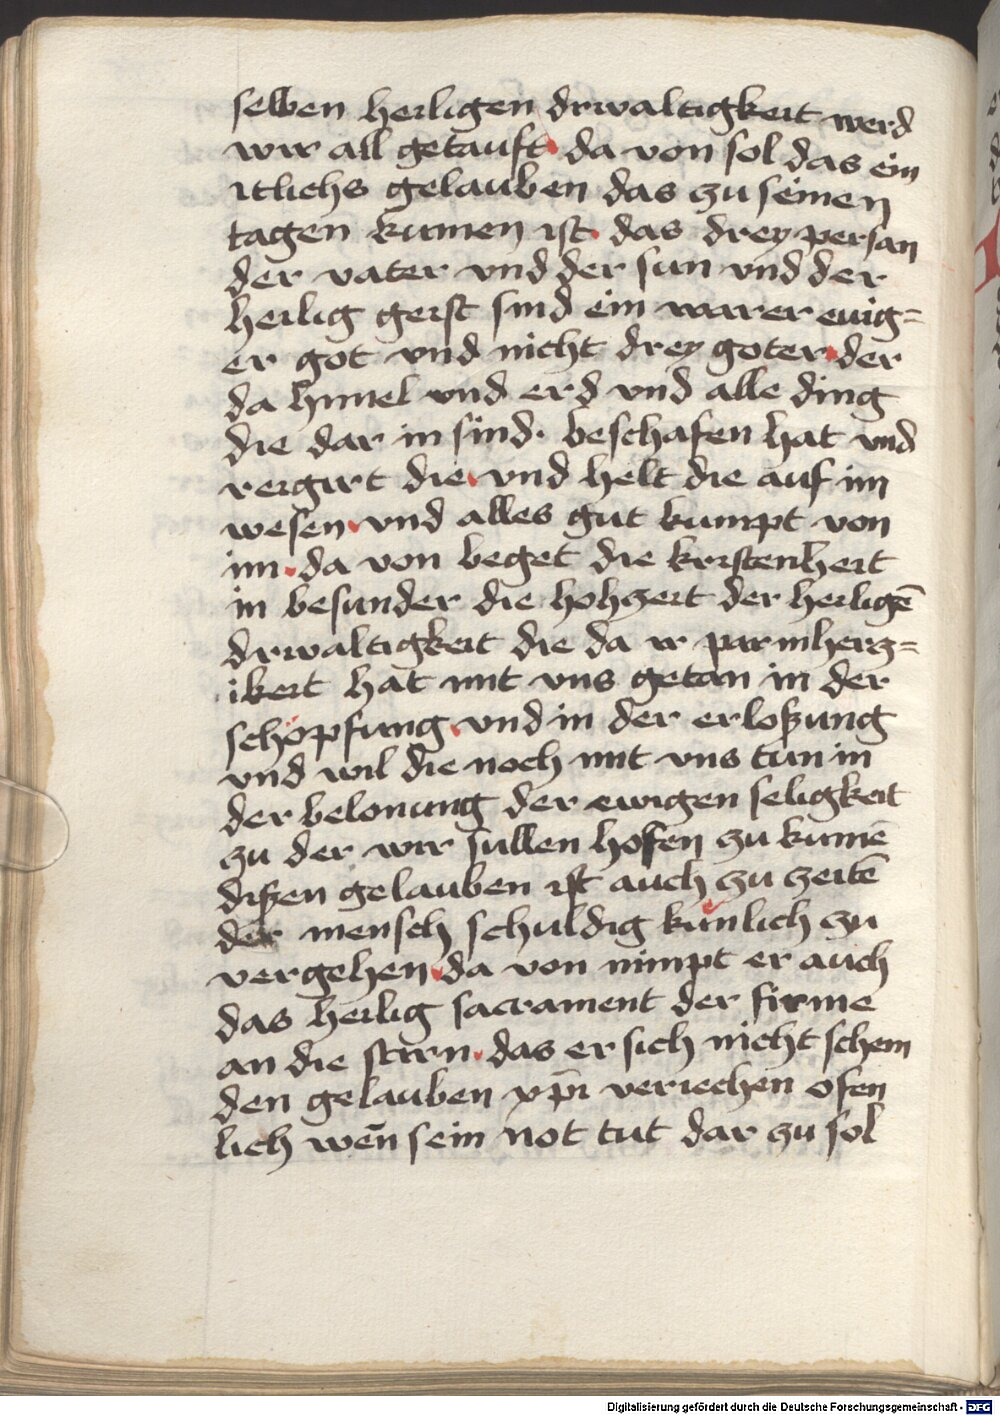 selben heiligen drivaltigkeit werd
wir all getauft da von sol das ein
itlichs gelauben das zu seinen
tagen kumen ist das drey persan
der vater vnd der sun vnd der
heilig geist sind ein warer ewig=
er got vnd nicht drey goter der
da himel vnd erd vnd alle ding
die dar in sind · beschafen hat vnd
reigirt die vnd helt die auf im
wesen vnd alles gut kumpt von
im · da von beget die kristenheit
in besunder die hohzeit der heiligē
drivaltigkeit die da ir parmherz=
ikeit hat mit vns getan in der
schöpfung vnd in der erloßung
vnd wil die noch mit vns tun in
der belonung der ewigen seligkeit
zu der wir sullen hofen zu kumē
dißen gelauben ist auch zu zeitē
der mensch schuldig künlich zu
vergehen da von nimpt er auch
das heilig sacrament der firme
an die stirn · das er sich nicht schem
den gelauben xp̄i veriechen ofen
lich wen̄ sein not tut dar zu sol
Digitalisierung gefördert durch die Deutsche Forschungsgemeinschaft - DFG